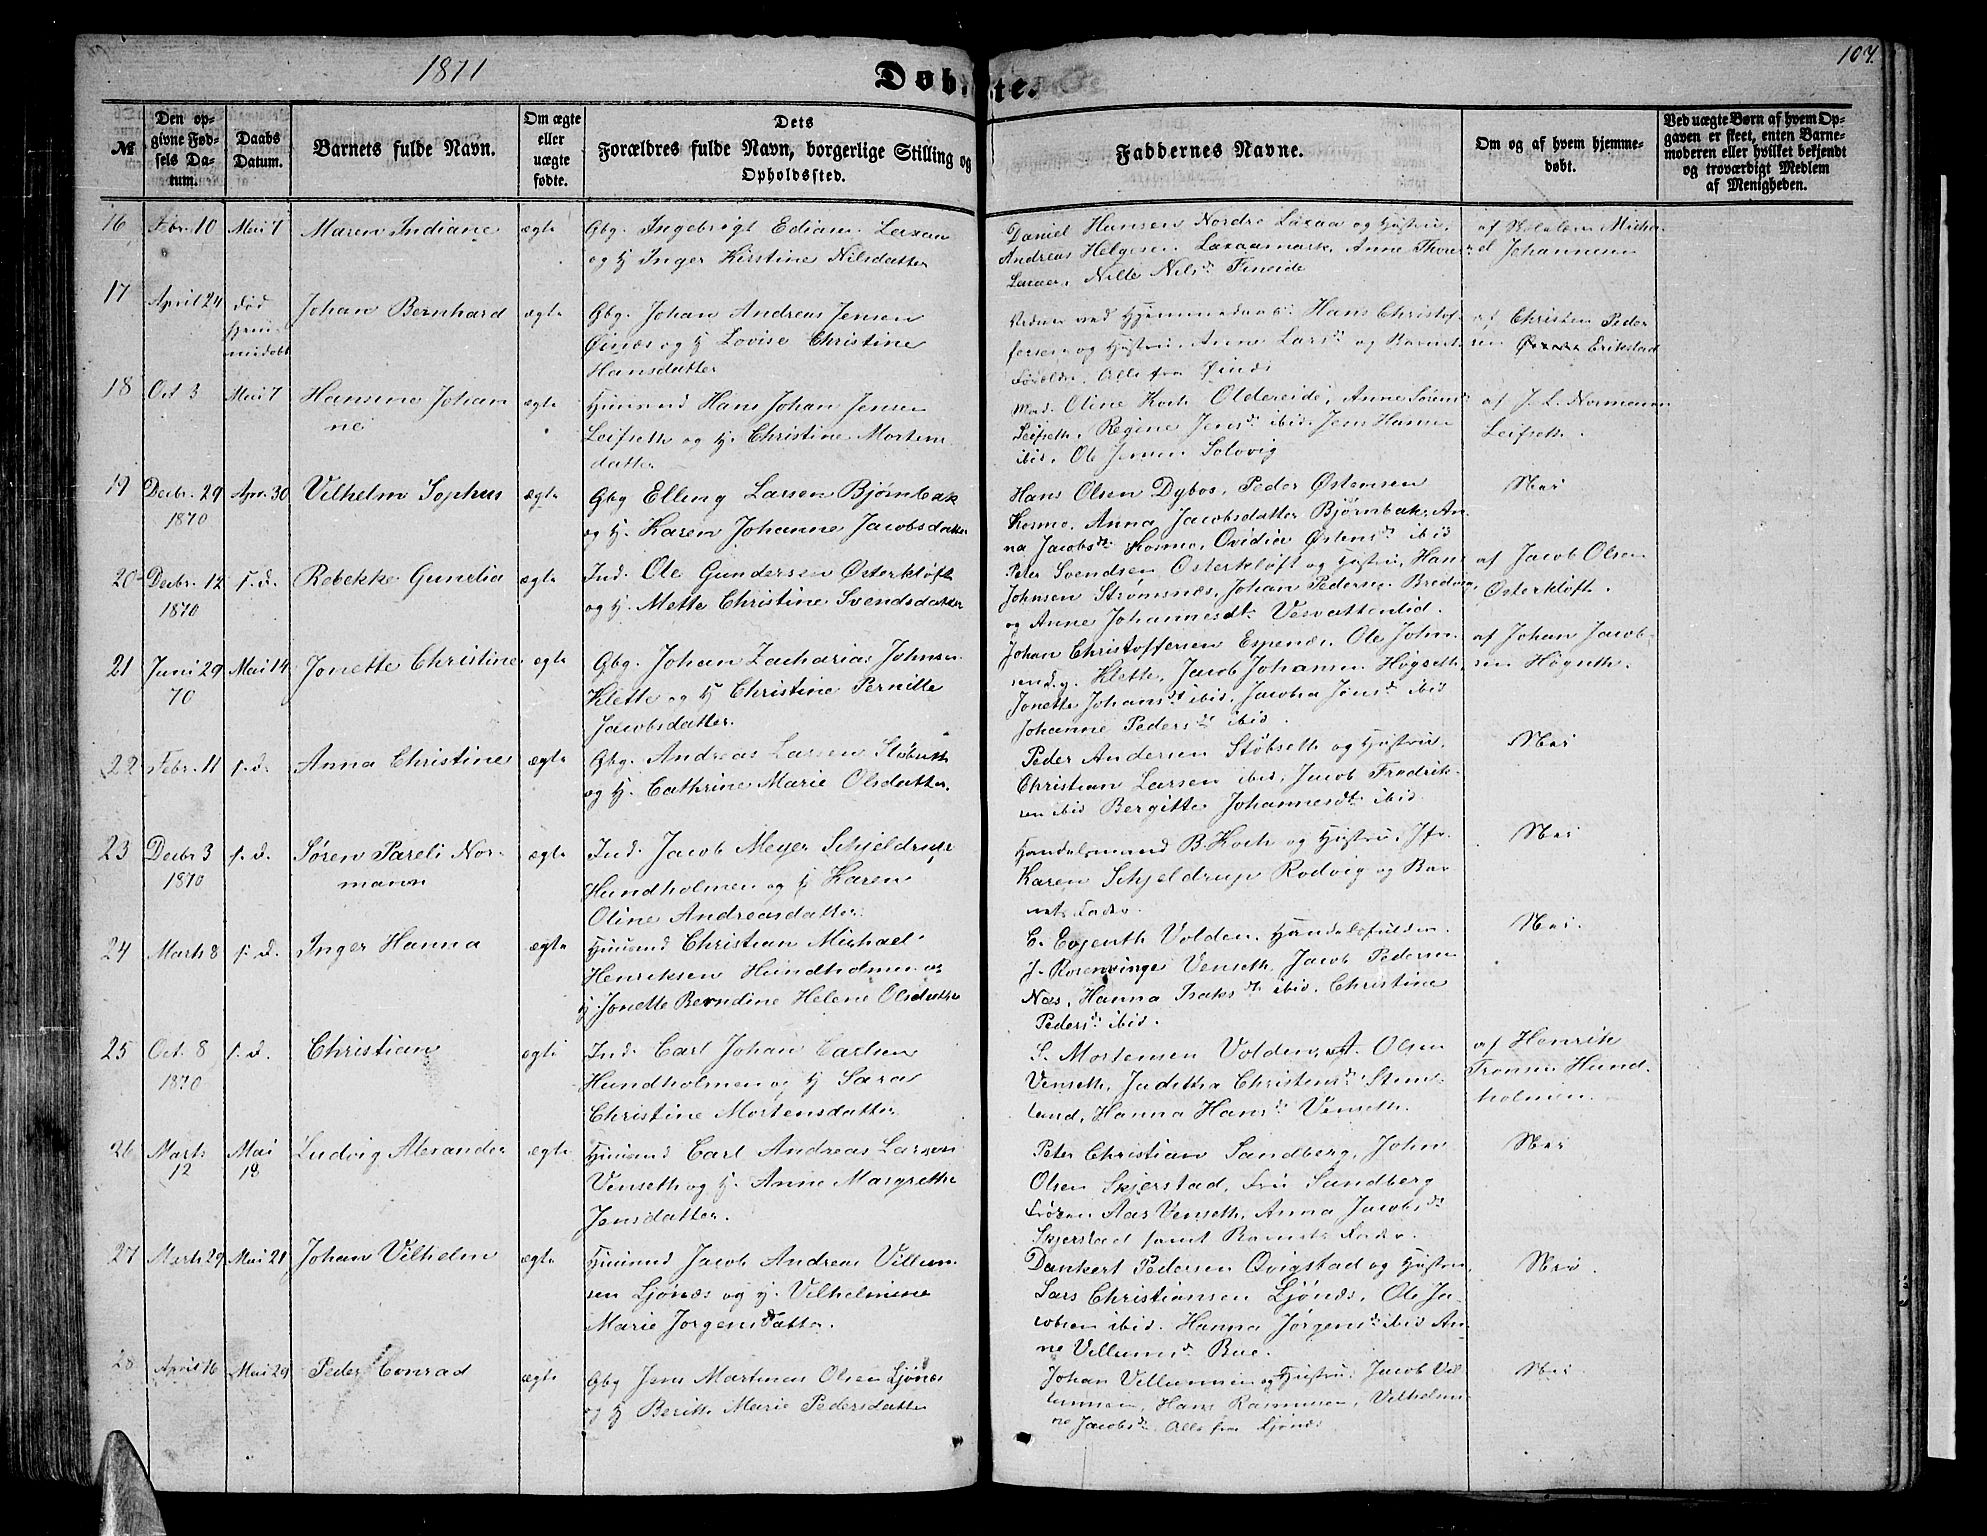 1871
Døbte.
107.
№
Den opgivne Fødsels Datum.
Daabs Datum.
Barnets fulde Navn.
Om ægte eller uægte fødte.
Dets Forældres fulde Navn, borgerlige Stilling og Opholdssted.
Faddernes Navne.
Om og af hvem hjemmedøbt.
Ved uægte Børn af hvem Opgaven er skeet, enten Barnemoderen eller hvilket bekjendt og troværdigt Medlem af Menigheden.
16 Febr. 10 Mai 7 Maren Indiane ægte
Gbg. Ingebrigt Edians. Laxaa
og H Inger Kirstine Nilsdatter
Daniel Hansen Nordre Laxaa og Hustru,
Andreas Helgesen Laxaamark, Anne Thores
Laxaa, Nille Nilsd. Fineide
Michael Johannesen
17 April 24 død hjemmedøbt Johan Bernhard ægte
Gbg. Johan Andreas Jensen
Øinæs og H Lovise Christine
Hansdatter
ved Hjemmedaab: Hans Christof-
fersen og Hustru, Anne Larsd. og Barnets
Forældre, Alle fra Øinæs
af Christen Peder
sen Erikstad
18 Oct 3 Mai 7 Hansine Johan
ne ægte
Huusmd Hans Johan Jensen
Leifseth og H. Christine Mortens
datter
Mad. Oline Koch Oldereide, Anne Sørensd.
Leifseth, Regine Jensd. ibid, Jens Hansen
ibid, Ole Jensen Solvig
af J. L. Normann
Leifseth.
19 Decbr. 29 1870 Apr. 30 Vilhelm Sophus ægte
Gbg Elling Larsen Bjørnbak
og H. Karen Johanne Jacobsdatter
Hans Olsen Dybos, Peder Østensen
Kosmo, Anna Jacobsdatter Bjørnbak, An-
na Jacobsdt. Kosmo, Ovidia Østensd. ibid
Nei
20 Decbr. 12 1870 s. d. Rebekke Gunelia ægte
Ind. Ole Gundersen Østerkløft
og H. Mette Christine Svendsdatter
Peter Svendsen Osterkløft og Hustru, Hans
Johnsen Strømsnæs, Johan Pedersen Bredvig
og Anne Johannesdt. Vesvattenlid.
af Jacob Olsen
Osterkløft.
21 Juni 29 70 Mai 14 Jonette Christine ægte
Gbg. Johan Zacharias Johnsen
Klette og H Christine Pernille
Jacobsdatter.
Johan Christoffersen Espenæs, Ole John-
send. y. Klette, Jacob Johansen Høgseth,
Jonette Johansdt. ibid, Jacobia Jonsd. ibid
Johanne Pedersdt ibid.
af Johan Jacob-
sen Høgseth.
22 Febr. 11 s. d. Anna Christine ægte
Gbg. Andreas Larsen Støbseth
og H. Cathrine Marie Olsdatter.
Peder Andersen Støbseth og Hustru,
Christian Larsen ibid, Jacob Fredrik-
sen ibid Bergitte Johannesdt. ibid.
Nei
23 Decbr 3 1870 s. d. Søren Pareli Nor-
mann ægte
Ind. Jacob Meyer Schjeldrup
Hundholmen og H Karen
Oline Andreasdatter.
Handelsmand B. Koch og Hustru, Jfr.
Karen Schjeldrup Rodvig og Bar
nets Fader.
Nei
24 Marts 8 s. d. Inger Hanna ægte
Huusmd Christian Michael
Henriksen Hundholmen og
H. Jonette Berndine Helene Olsdatter
E. Evjenth Volden, Handelsfuldm.
J. Rosenvinge Venseth, Jacob Pedersen
Næs, Hanna Isaksdt. ibid, Christine
Pedersd. ibid.
Nei.
25 Oct. 8 1870 s. d. Christian ægte
Ind. Carl Johan Carlsen
Hundholmen og H Sara
Christine Mortensdatter
S. Mortensen Volden, A. Olsen
Venseth, Juditha Christensd. Stem-
land, Hanna Hansd. Venseth.
af Henrik
Fransen Hund-
holmen.
26 Marts 12 Mai 18 Ludvig Alexander ægte
Huusmd Carl Andreas Larsen
Venseth og H. Anne Margrethe
Jensdatter.
Peter Christian Sandberg, John
Olsen Skjerstad, Fru Sandberg
Frøken Aas Venseth, Anna Jacobsdt.
Skjerstad samt Barnets Fader.
Nei
27 Marts 29 Mai 21 Johan Vilhelm ægte
Huusmd Jacob Andreas Villum-
sen Ljønæs og H. Vilhelmine
Marie Jørgensdatter.
Dankert Pedersen Qvigstad og Hustru,
Lars Christiansen Ljønæs, Ole Ja-
cobsen ibid. Hanna Jørgensd. ibid An-
ne Villumsd. Bae.
Nei.
28 April 16 Mai 29 Peder Conrad ægte
Gbg Jens Martinus Olsen Ljønæs
og H Berith Marie Pedersdatter
Johan Villumsen og Hustru, Jacob Vil-
lumsen, Hans Rasmusen, Vilhelmi-
ne Jacobsdt. Alle fra Ljønæs
Nei